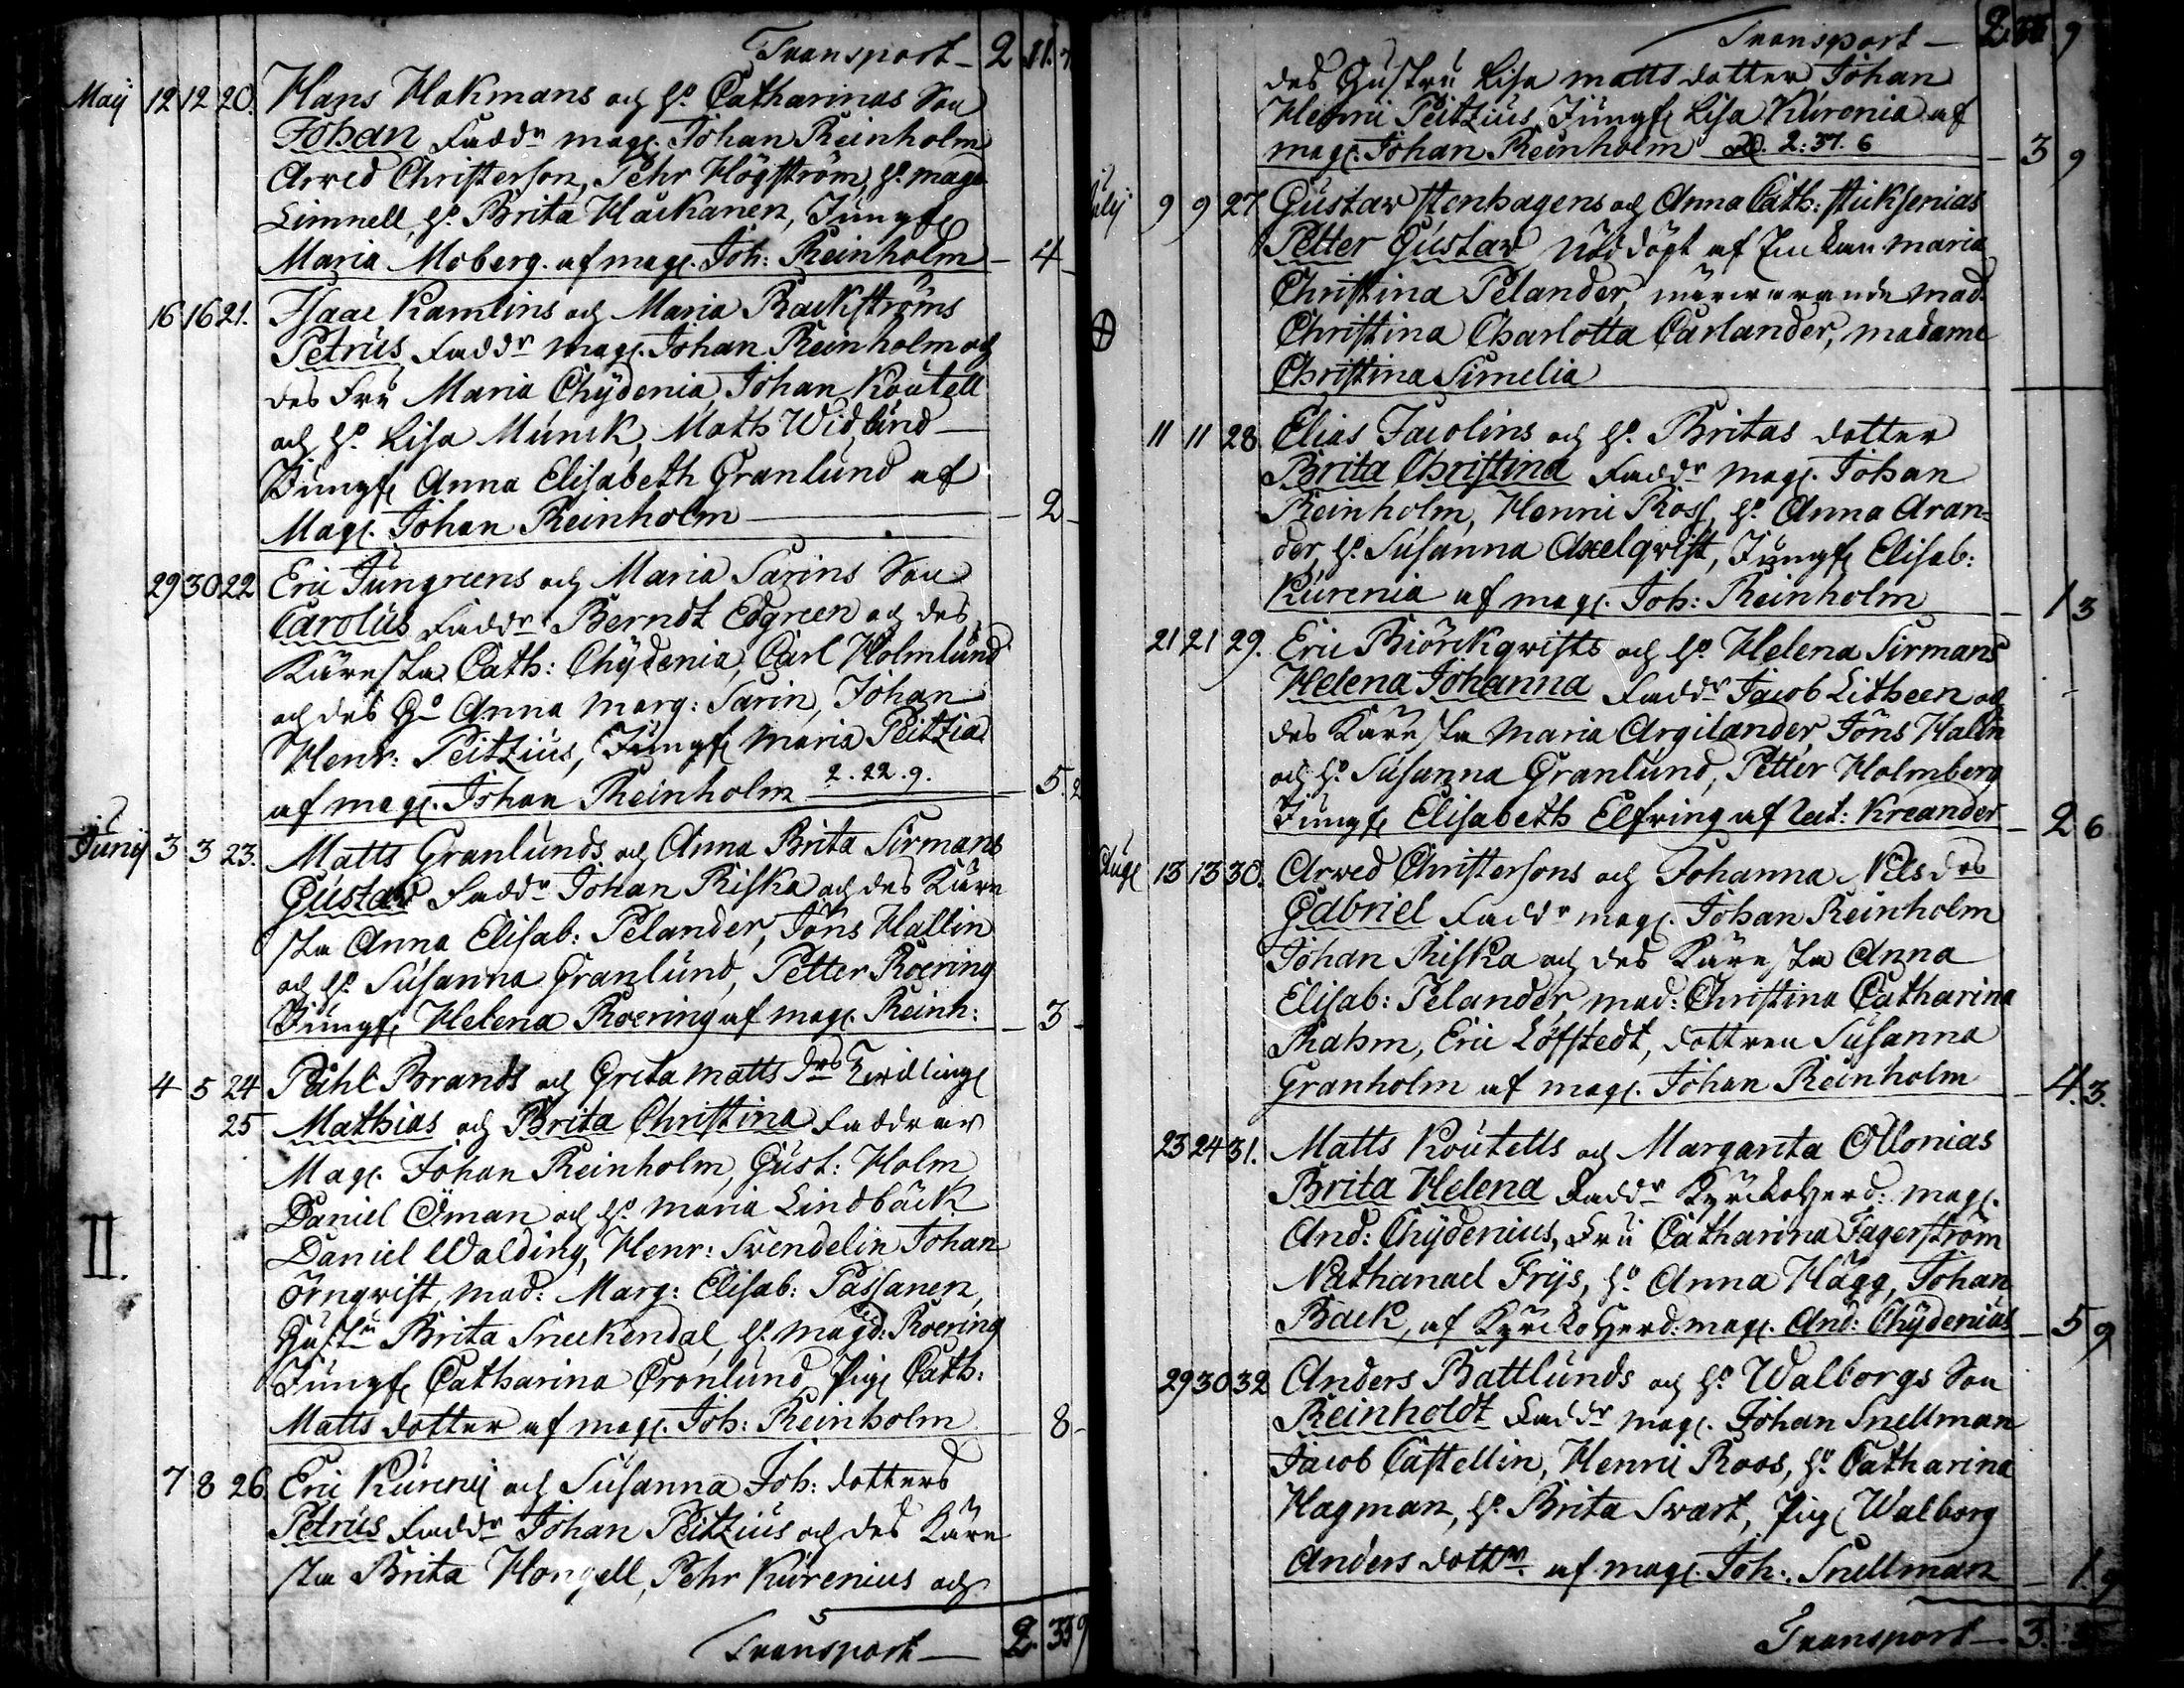 Transport - 2 11. 7
Maij 12 12 20. Hans Hakmans och H:o Catharinas Son
Johan Fadd:r mag. Johan Reinholm
Arved Christerson, Pehr Högström, H:o mag.
Limnell, H:o Brita Hackanen, Jungf.
Maria Moberg. af mag. Joh: Reinholm - 4 -
16 16 21. Isaac Kamlins och Maria Backströms
Petrus, Fadd:r Mag. Johan Reinholm och
des Fru Maria Chydenia, Johan Koutell
och H:o Lisa Munck, Math Widlund
Jungf. Anna Elisabeth Granlund af
Mag. Johan Reinholm - 2 -
29 30 22 Eric Jungreens och Maria Sarins Son
Carolus Fadd:r Berndt Edgreen och des
Käresta Cath: Chydenia, Carl Holmlund
och des H:o Anna Marg: Sarin, Johan
Henr: Peitzius, Jungf. Maria Peitzia
af mag. Johan Reinholm 2. 22. 9. - 5 2
Junij 3 3 23. Matts Granlunds och Anna Brita Sirmans
Gustav Fadd:r Johan Riska och des Käre
sta Anna Elisab: Pelander, Jöns Hallin
och H:o Susanna Granlund, Petter Roering
Jungf. Helena Roering af mag. Reinh: - 3 -
4 5 24 Påhl Brands och Greta Matts d:rs Twilling.
25 Mathias och Brita Christina Faddrar
Mag. Johan Reinholm, Gust: Holm
Daniel Öman och H:o Maria Lindbäck
II. Daniel Walding, Henr: Svendelin Johan
Örnqvist, mad: Marg: Elisab: Passanen,
Hust:u Brita Sneckendal, H:o Magd: Roering
Jungf. Catharina Cronlund, Pig. Cath:
Matts dotter af mag. Joh: Reinholm 8 -
7 8 26 Eric Kurenij och Susanna Joh: dotters
Petrus Fadd:r Johan Peitzius och des Käre
sta Brita Hongell, Pehr Kurenius och
Transport - 2. 33 9
Transport - 2 33 9
des Hustru Lisa Matts dotter Johan
Henric Peitzius, Jungf. Lisa Kurenia af
mag. Johan Reinholm 2: 37. 6 - 3 9
Julij 9 9 27 Gustav Stenhagens och Anna Cath: Sticksenias
Petter Gustav Nöddöpt af Enckan Maria
Christina Pelander, närwarande mad.
Christina Charlotta Carlander, madame
Christina Simelia
11 11 28 Elias Jacolins och H:o Britas dotter
Brita Christina Fadd:r Mag. Johan
Reinholm, Henric Ross, H:o Anna Aran-
der, H:o Susanna Axelqvist, Jungf. Elisab:
Kurenia af mag. Joh: Reinholm - 1 3
21 21 29. Eric Biörckqvists och H:o Helena Sirmans
Helena Johanna Fadd:r Jacob Litheen och
des Käresta Maria Argilander, Jöns Halin
och H:o Susanna Granlund, Petter Holmberg
Jungf. Elisabeth Elfving af Kreander - 2 6
Aug. 13 13 30. Arved Christersons och Johanna Nils d:os
Gabriel Fadd:r mag. Johan Reinholm
Johan Riska och des Käresta Anna
Elisab: Pelander, mad: Christina Catharina
Rahm, Eric Löfstedt, dottren Susanna
Granholm af mag. Johan Reinholm - 4. 3.
23 24 31. Matts Koutells och Margareta Ollonias
Brita Helena Fadd:r KyrckoHerd: mag.
And: Chydenius, Fru Catharina Fagerström
Nathanael Frijs, H:o Anna Hägg, Johan
Back, af KyrckoHerd: mag. And: Chydenius - 5 9
29 30 32 Anders Battlunds och H:o Walborgs Son
Reinholdt Fadd:r mag. Johan Snellman
Jacob Castellin, Henric Roos, H:o Catharina
Hagman, H:o Brita Svart, Pig. Walborg
Anders dott:r af mag. Joh: Snellman - 1. 9
Transport - 3.